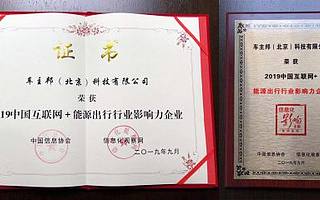 证书
车主邦（北京）科技有限公司
荣获
019中国互联网+能源出行行业影响力企业
中国信息协会
信息化观察网
二〇一九年九月
车主邦（北京）科技有限公司
荣获
2019中国互联网+
能源出行行业影响力企业
信息化
影响
中国信息协会
二〇一九年九月